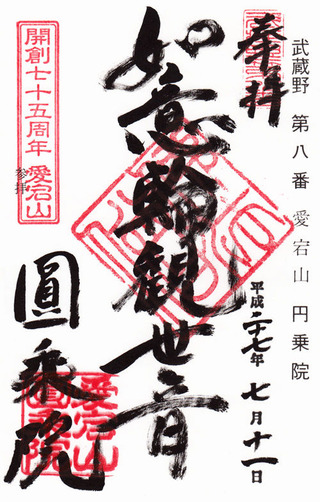 武蔵野 第八番 愛宕山 円乗院
奉拝
平成二十七年 七月十一日
如意輪観世音
開創七十五周年 愛宕山
参拝
圓乗院
愛宕山
圓乗院